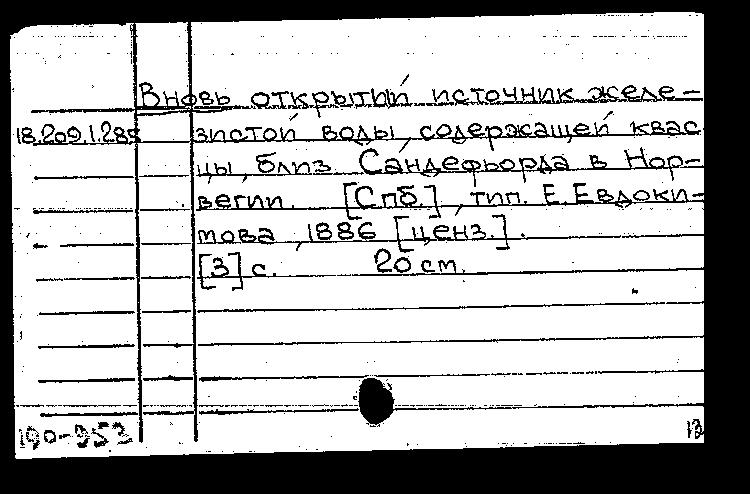 Вновь открытий источник желе-
18.209.1.285 зистой воды, содержащей квас
цы, близ Сандефьорда в Нор-
вегии. [Спб.], тип. Е. Евдоки-
мова, 1886 [ценз.].
[3] с. 20 см.
190-953 12